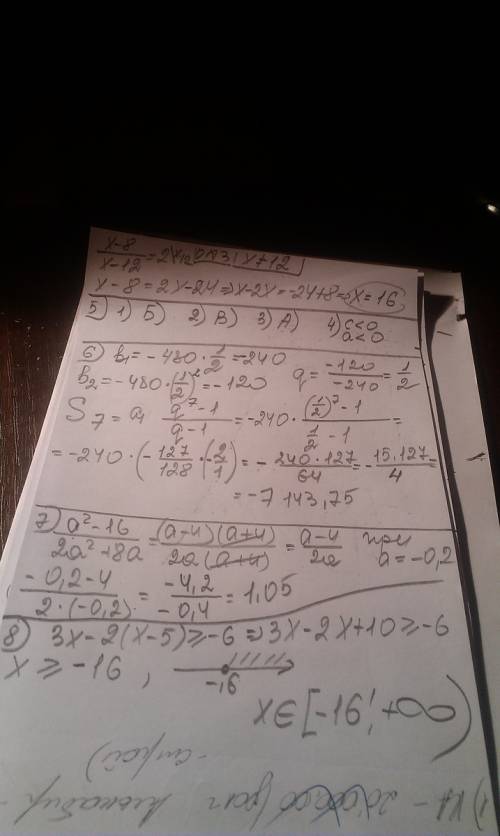 x-8/x-12 = 2 | x ≠ 12
x-8 = 2x-24 ⇒ x-2x = -24+8 ⇒ x = 16
5) 1) Б) 2) В) 3) А) 4) c<0 a<0
6) b₁ = -480 · 1/2 = -240
b₂ = -480 · (1/2)² = -120 q = -120/-240 = 1/2
S₇ = a₁ q⁷-1/q-1 = -240 · (1/2)⁷-1 / 1/2-1 =
= -240 · (-127/128 · (-2/1)) = - 240·127/64 = - 15·127/4 =
= -7143,75
7) a²-16/2a²+8a = (a-4)(a+4)/2a(a+4) = a-4/2a при a = -0,2
-0,2-4/2·(-0,2) = -4,2/-0,4 = 1,05
8) 3x-2(x-5) ≥ -6 ⇒ 3x-2x+10 ≥ -6
x ≥ -16, -16
x∈[-16; +∞)